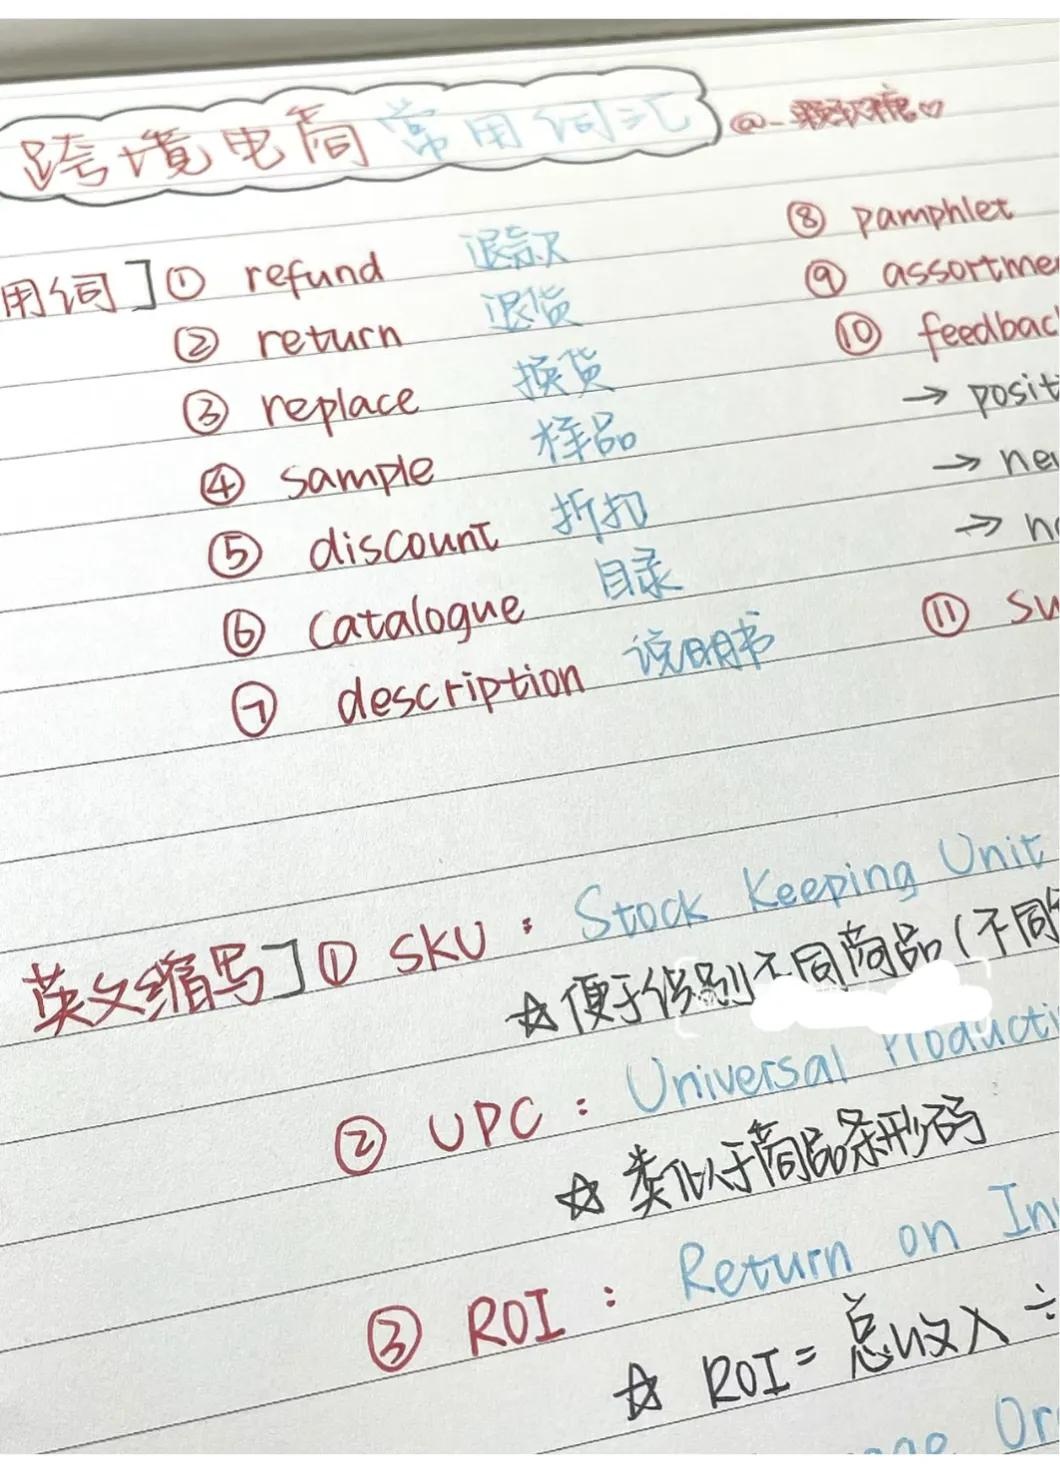 跨境电商常用词汇 @_颗软糖♡
用词] ① refund 退款
② return 退货
③ replace 换货
④ sample 样品
⑤ discount 折扣
⑥ catalogue 目录
⑦ description 说明书
⑧ pamphlet
⑨ assortme
⑩ feedbac
→ posit
→ ne
→ n
⑪ su
英文缩写] ① SKU : Stock Keeping Unit
☆ 便于识别不同商品(不同
② UPC : Universal Producti
☆ 类似于商品条形码
③ ROI : Return on In
☆ ROI = 总收入 ÷
Or